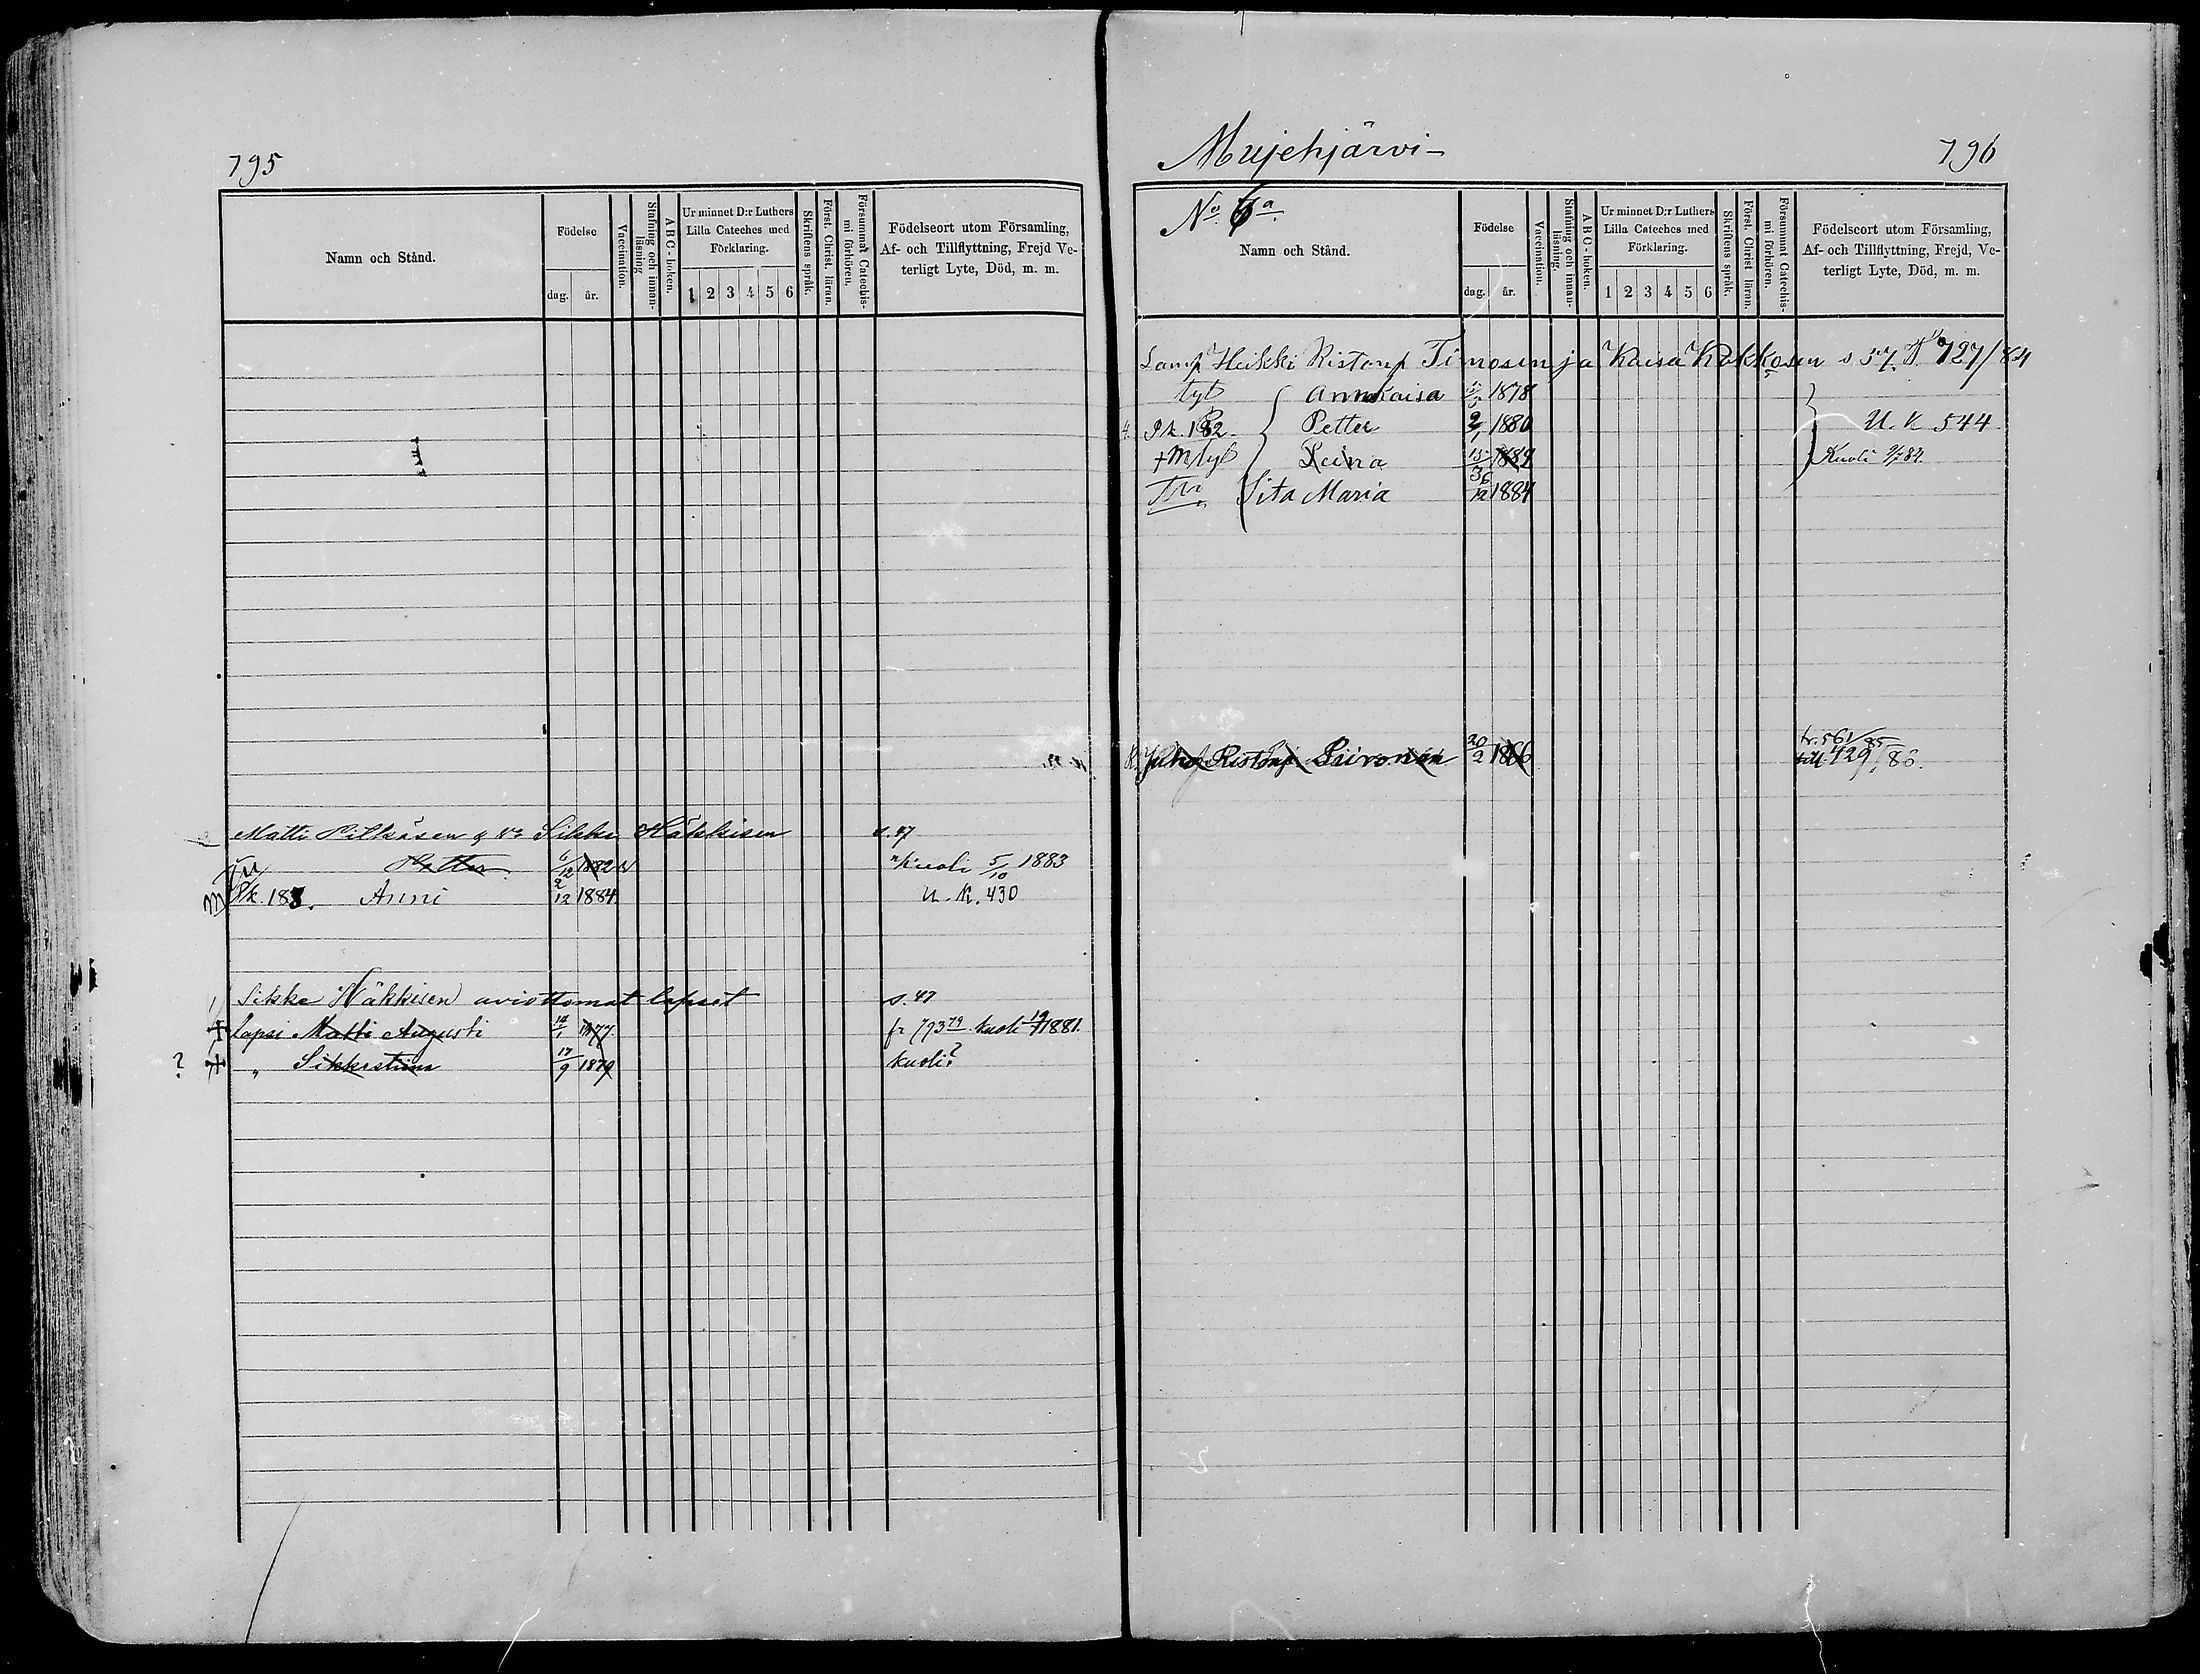 795
Namn och Stånd.
Födelse
dag.
år.
Vaccination.
Stafning och innanläsning
ABC-boken.
Ur minnet D:r Luthers
Lilla Cateches med
Förklaring.
1 2 3 4 5 6
Skriftens språk.
Förat. Christ. läran.
Försummat Catechismi förhören.
Födelseort utom Församling,
Af- och Tillflyttning, Frejd Ve-
terligt Lyte, Död, m. m.
Matti Pitkäsen Sikke Häkkisen s. 47
Petter 6/12 1882 Kuoli 5/10 1883
Pk. 188. Anni 2/12 1884 U. K. 430
Sikke Häkkisen aviottomat lapset s. 47
lapsi Matti Augusti 14/1 1877. fr 793 79 kuoli 1881.
? „ Sikkristiina 17/9 1879 kuoli?
Mujehjärvi- 796
No 6a
Namn och Stånd.
Födelse
dag.
år.
Vaccination.
Stafning och innanläsning.
ABC-boken.
Ur minnet D:r Luthers
Lilla Cateches med
Förklaring.
1 2 3 4 5 6
Skriftens språk.
Först. Christ läran.
Försummat Catechismi förhören.
Födelseort utom Församling,
Af- och Tillflyttning, Frejd, Ve-
terligt Lyte, Död, m. m.
Lamp Heikki Ristonp Timosen ja Kaisa Kokkosen s 727/84
tyt Annakaisa 1878
Pk. 182 Petter 2/1 1880 U. K 544
+ M tyt Leena Kuoli
Sita Maria 1884
Juho Ristonp. Piironen 20/2 1866 tr. 561/85
till. 429/86.